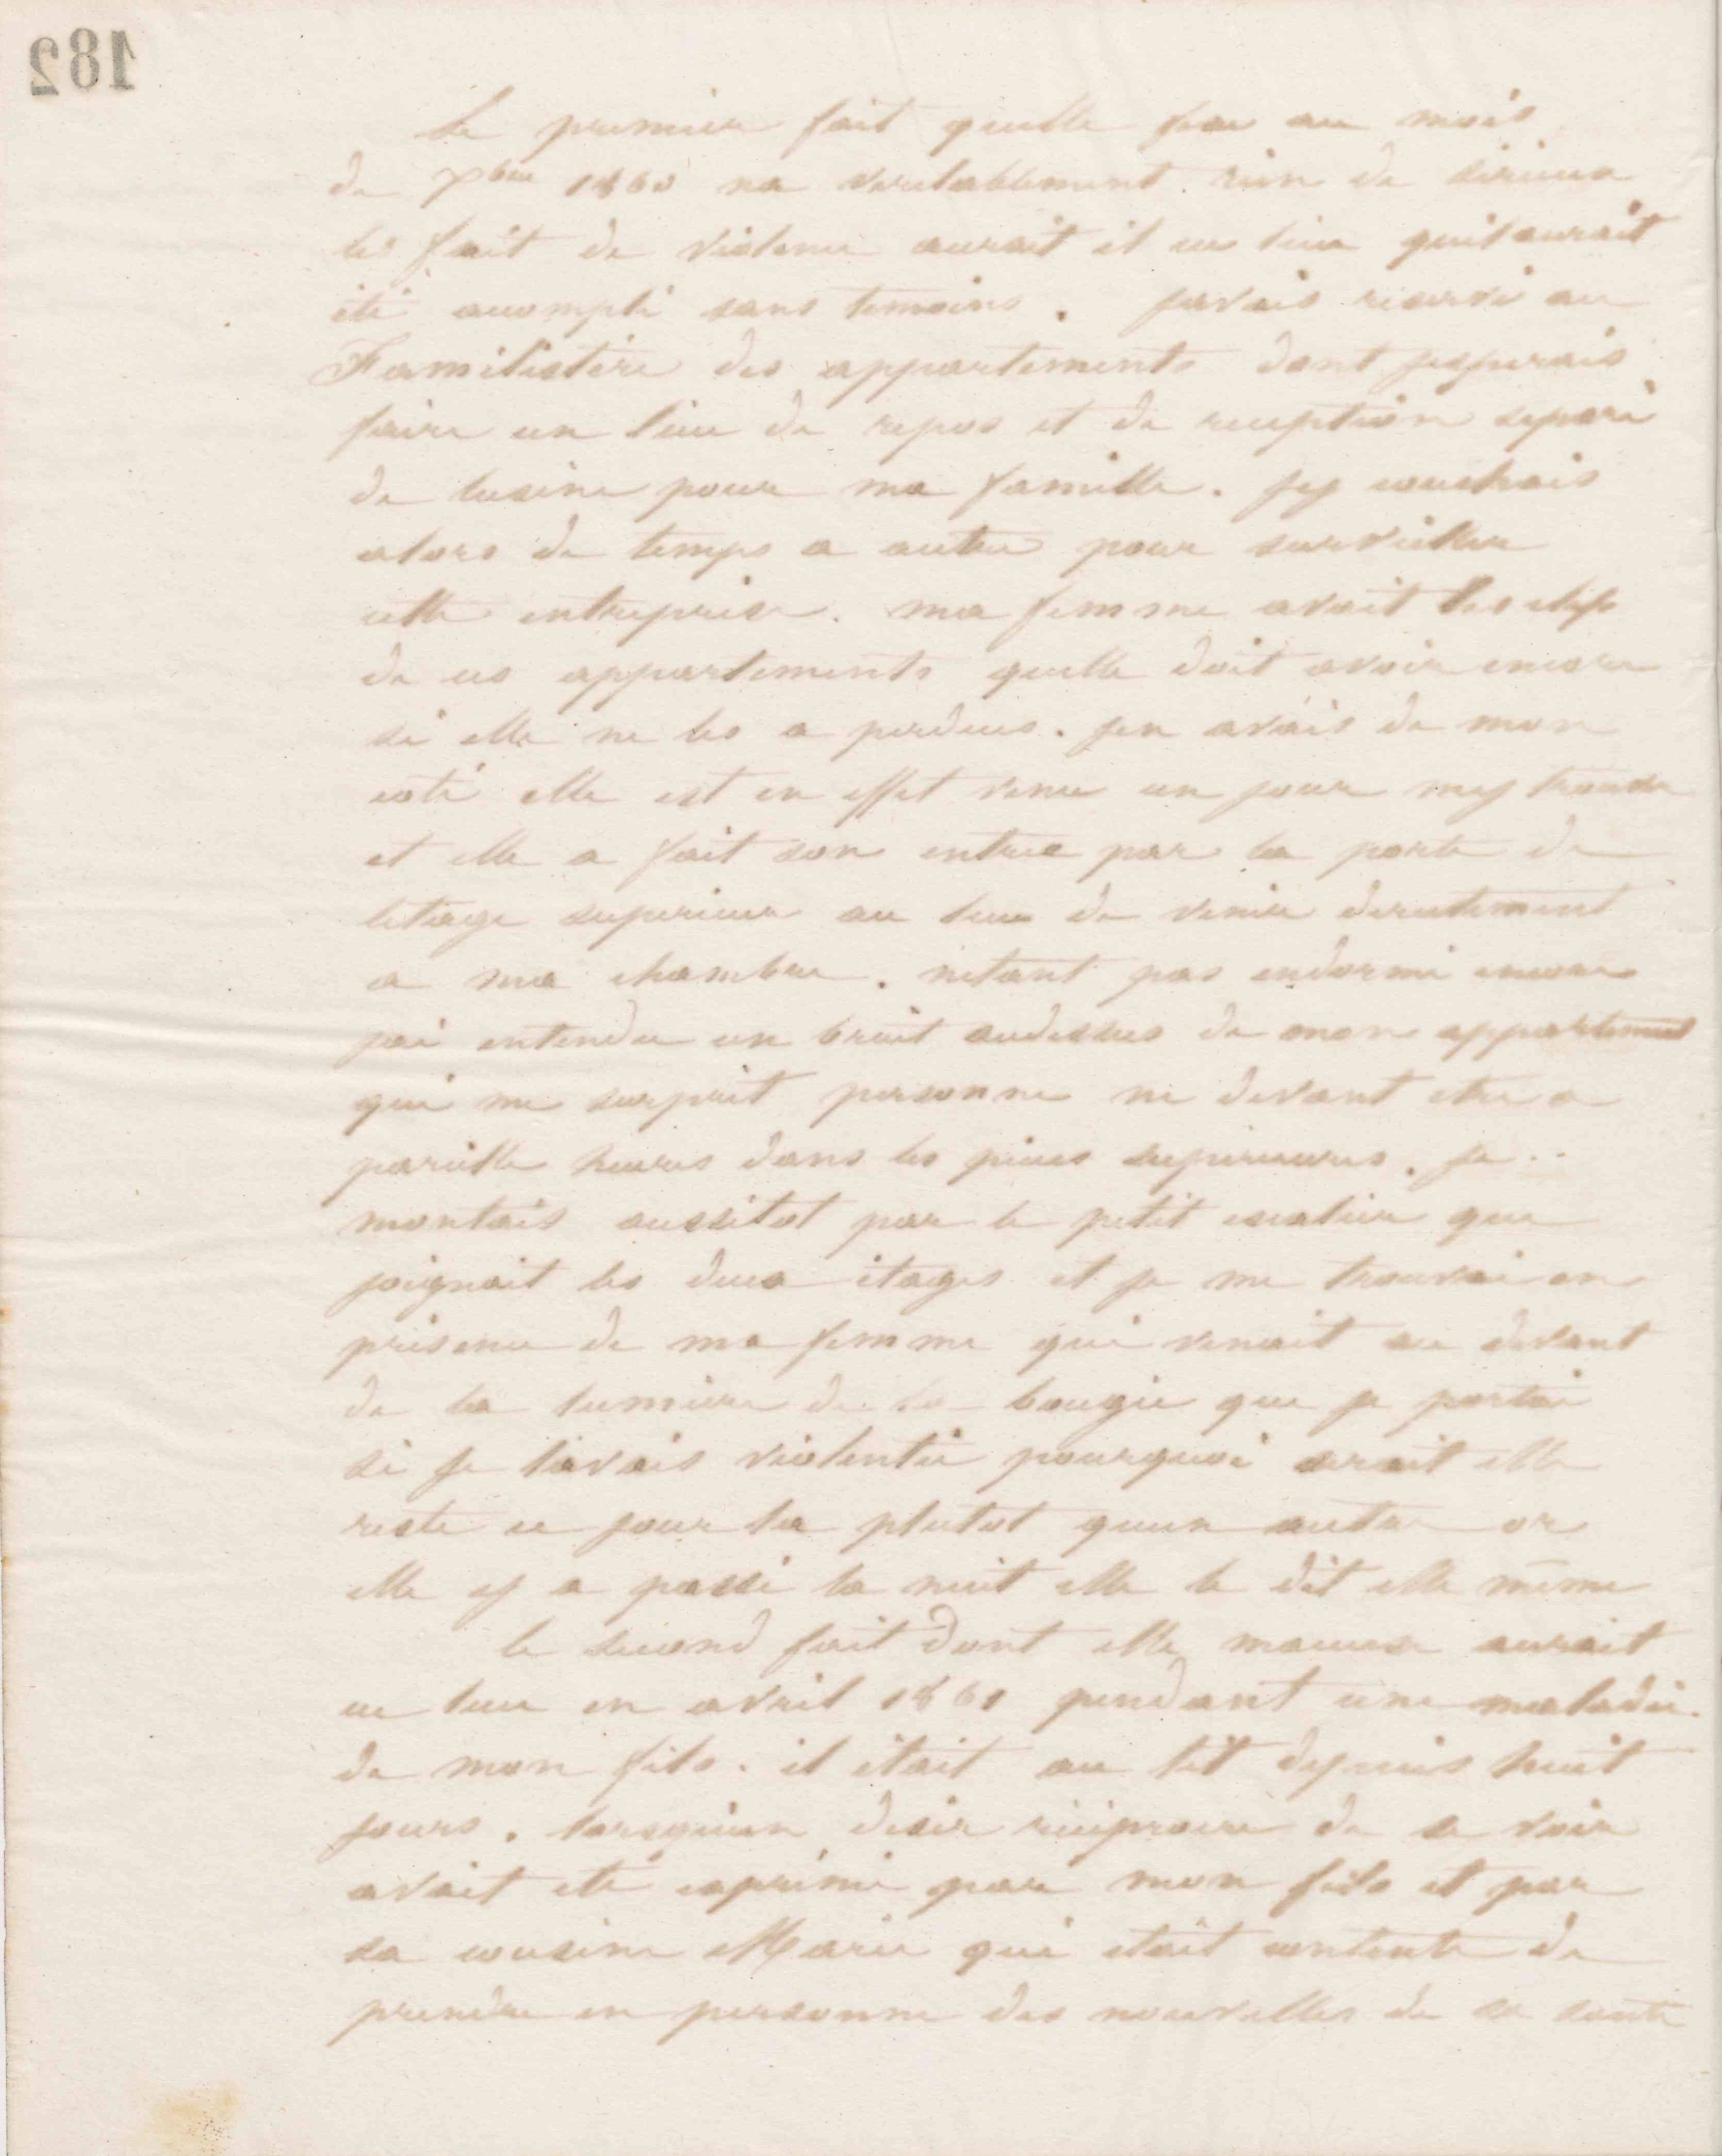 182
Le premier fait quelle fixe au mois
de Xbre 1860 na veritablement rien de sérieux
les fait de violence aurait il eu lieu quil aurait
été accompli sans temoins. Javais reservé au
Familistère des appartements dont jesperais
faire un lieu de repos et de reception separé
de lusine pour ma famille. Jy couchais
alors de temps a autre pour surveiller
cette entreprise. ma femme avait les clefs
de ces appartements quelle doit avoir encore
si elle ne les a perdues. Jen avais de mon
coté elle est en effet venue un jour my trouver
et elle a fait son entree par la porte de
letage superieur au lieu de venir directement
a ma chambre. netant pas endormi encore
jai entendu un bruit audessus de mon appartement
qui me surprit personne ne devant etre a
pareille heures dans les pieces superieures. Je
montais aussitot par le petit escalier qui
joignait les deux étages et je me trouvai en
présence de ma femme qui venait au devant
de la lumiere de la bougie que je portai
si je lavais violentée pourquoi serait elle
reste ce jour la plutot quun autre or
elle y a passé la nuit elle le dit elle même
le second fait dont elle maccuse aurait
eu lieu en avril 1861 pendant une maladie
de mon fils. il était au lit depuis huit
jours. lorsquun desir réciproque de se voir
avait eté exprimé par mon fils et par
sa cousine Marie qui était contente de
prendre en personne des nouvelles de sa santé